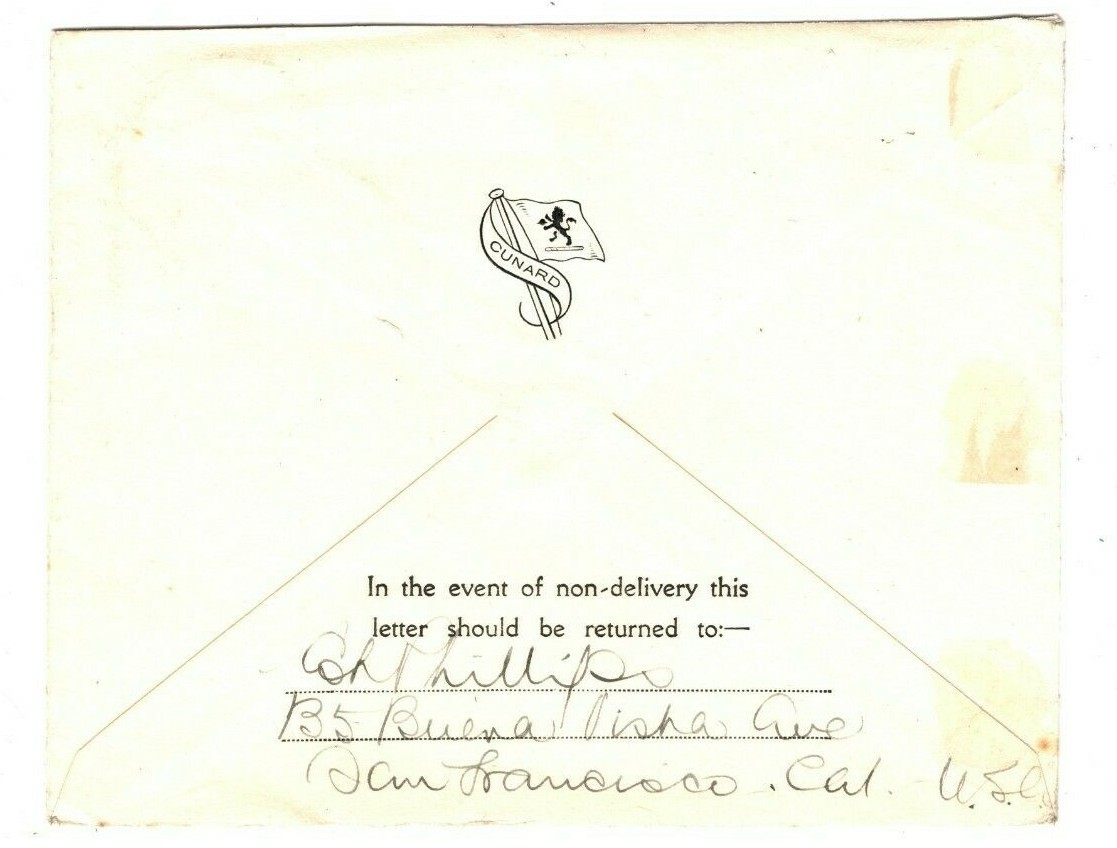 CUNARD
In the event of non-delivery this
letter should be returned to:—
Phillips
Buena Vista Ave
San Francisco. Cal. U.S.A.